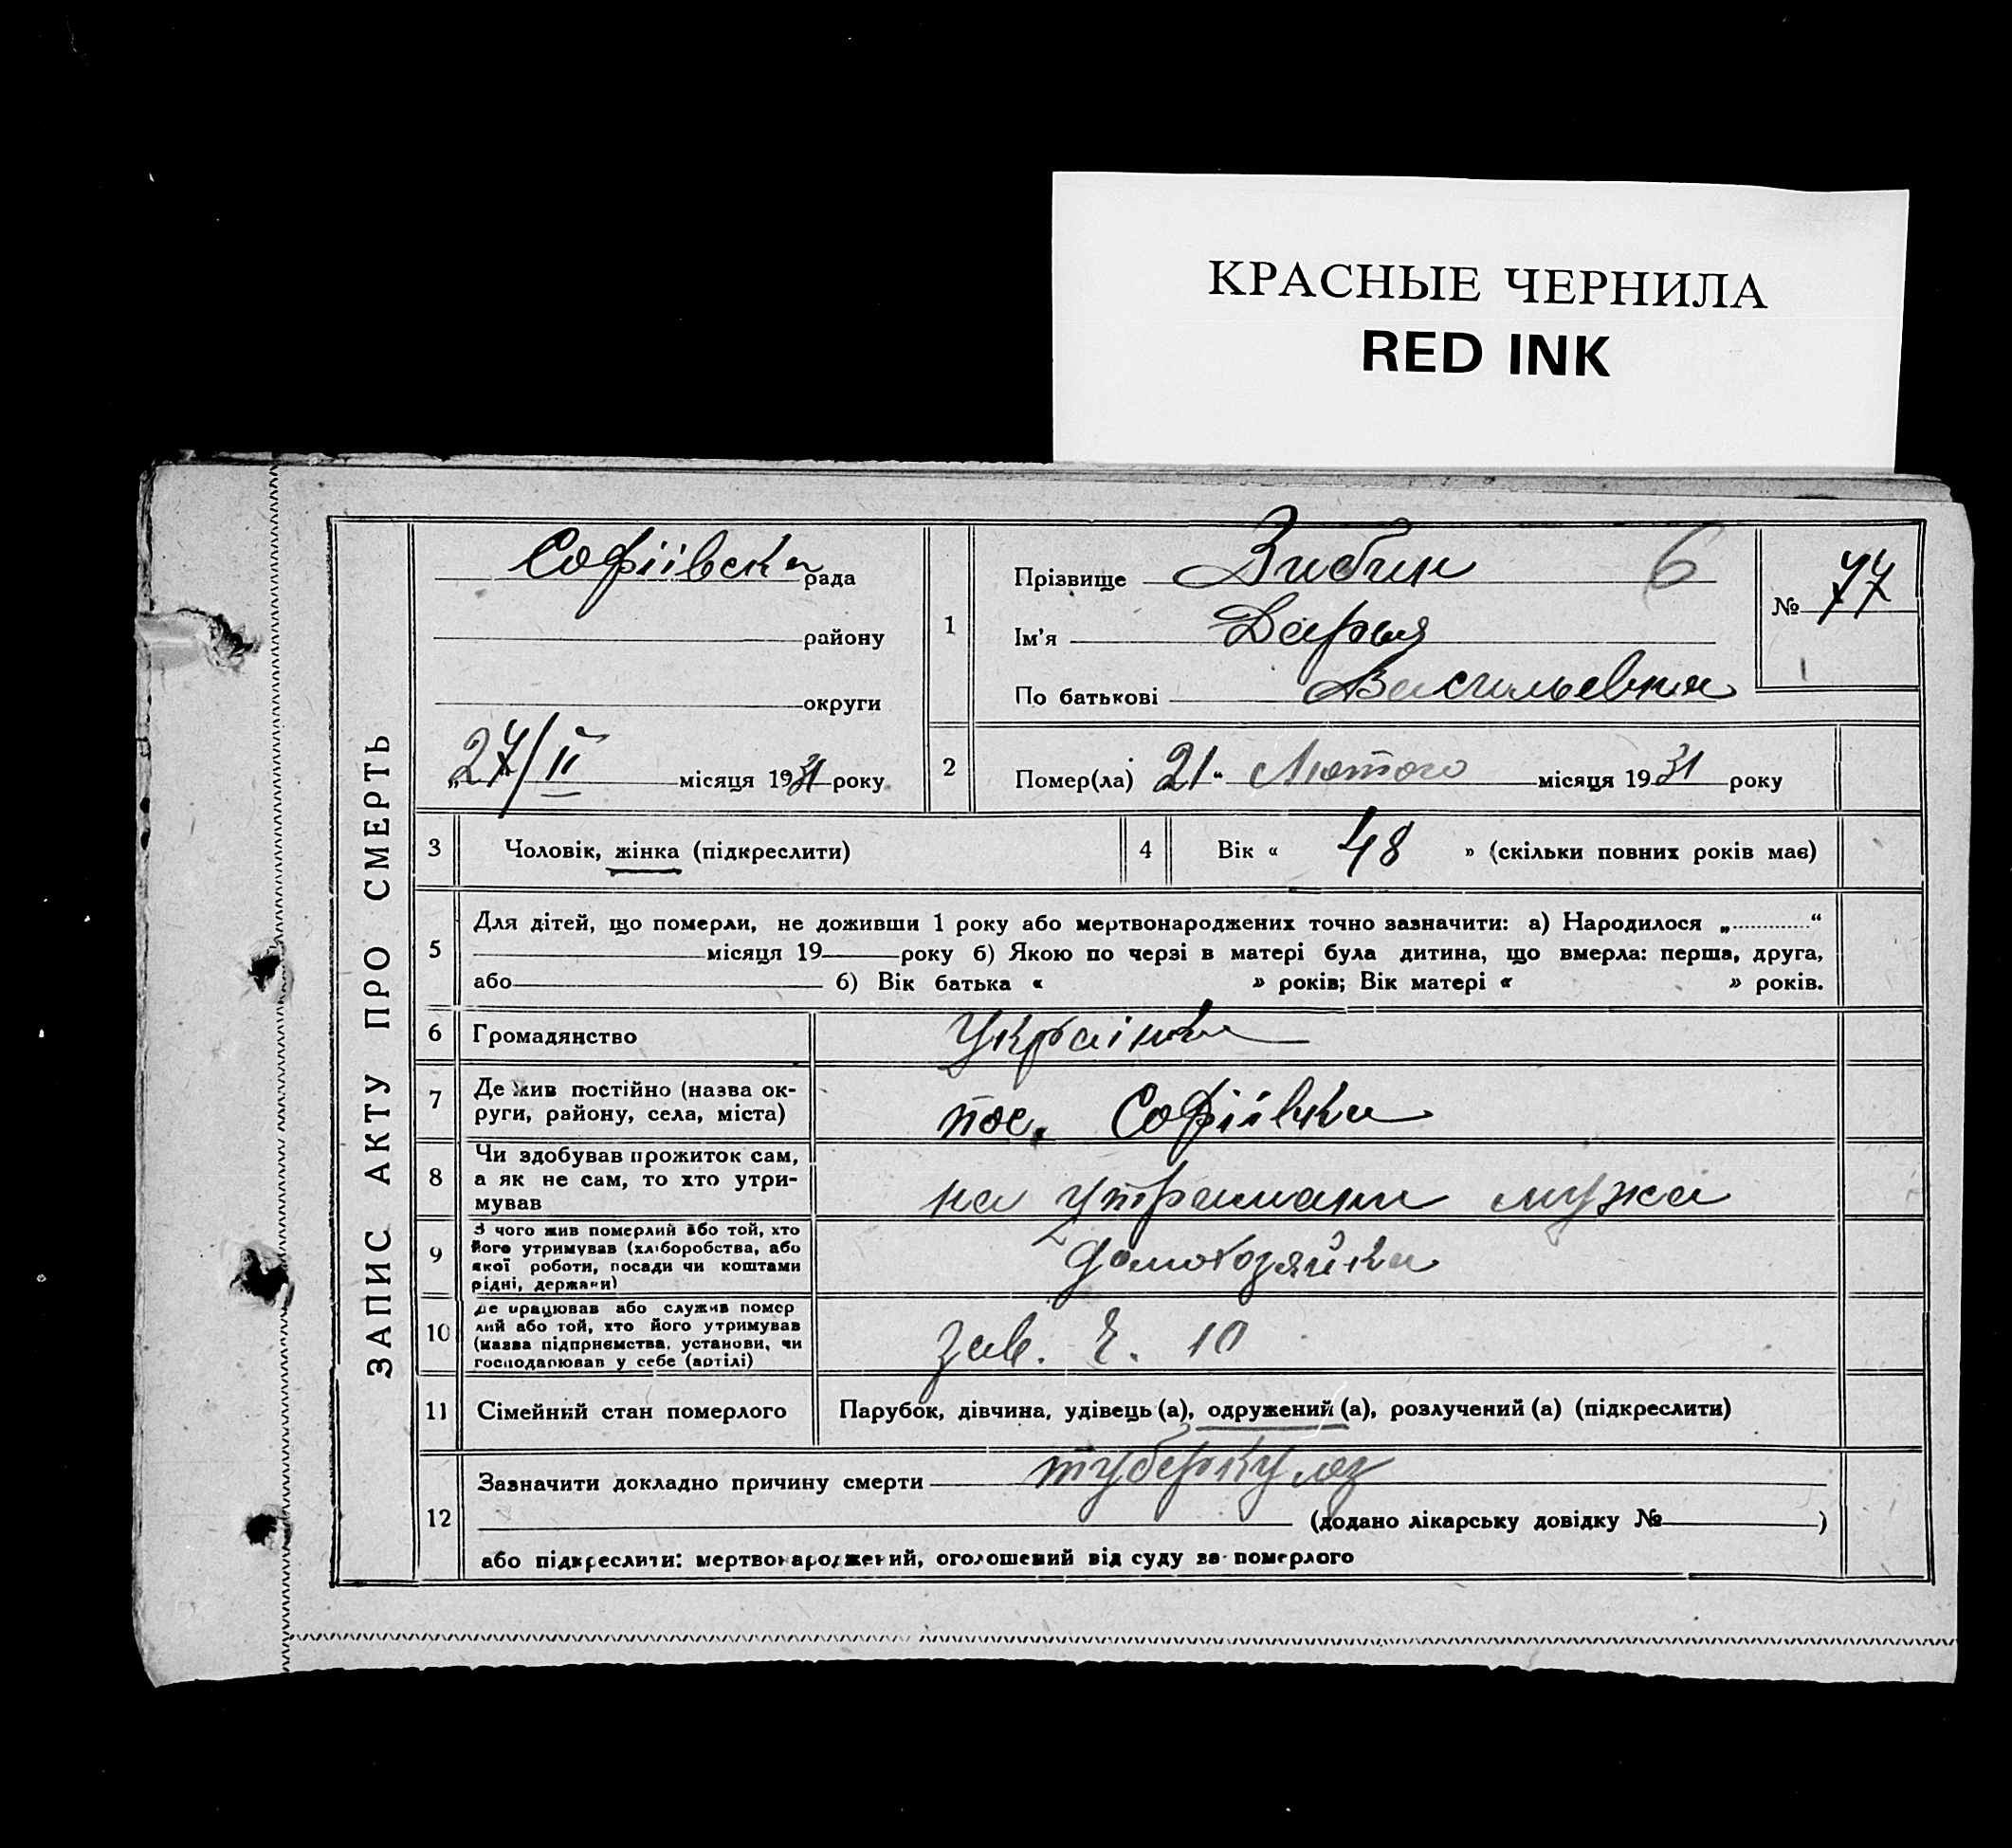 КРАСНЫЕ ЧЕРНИЛА
RED INK
ЗАПИС АКТУ ПРО СМЕРТЬ
Софіівска рада
району
округи
„27/II місяця 1931 року
1
Прізвище Зибин 6
Ім'я Дарья
По батькові Васильевна
№ 77
2 Помер(ла) 21„ Лютого місяця 1931 року
3 Чоловік, жінка (підкреслити)
4 Вік « 48 » (скільки повних років має)
5
Для дітей, що померли, не доживши 1 року або мертвонароджених точно зазначити: а) Народилося „..............“
місяця 19 року б) Якою по черзі в матері була дитина, що вмерла: перша, друга,
або б) Вік батька « » років; Вік матері « » років.
6 Громадянство Украінка
7 Де жив постійно (назва ок-
руги, району, села, міста)
пос. Софіівка
8 Чи здобував прожиток сам,
а як не сам, то хто утри-
мував
на утримани мужа
9 З чого жив померлий або той, хто
його утримував (хліборобства, або
якої роботи, посади чи коштами
рідні, держави)
домохозяйка
10 Де працював або служив помер
лий або той, хто його утримував
(назва підприємства, установи, чи
господарював у себе (артілі)
зав. 10
11 Сімейний стан померлого Парубок, дівчина, удівець (а), одружений (а), розлучений (а) (підкреслити)
12
Зазначити докладно причину смерти туберкулоз
(додано лікарську довідку № )
або підкреслити: мертвонароджений, оголошений від суду за померлого